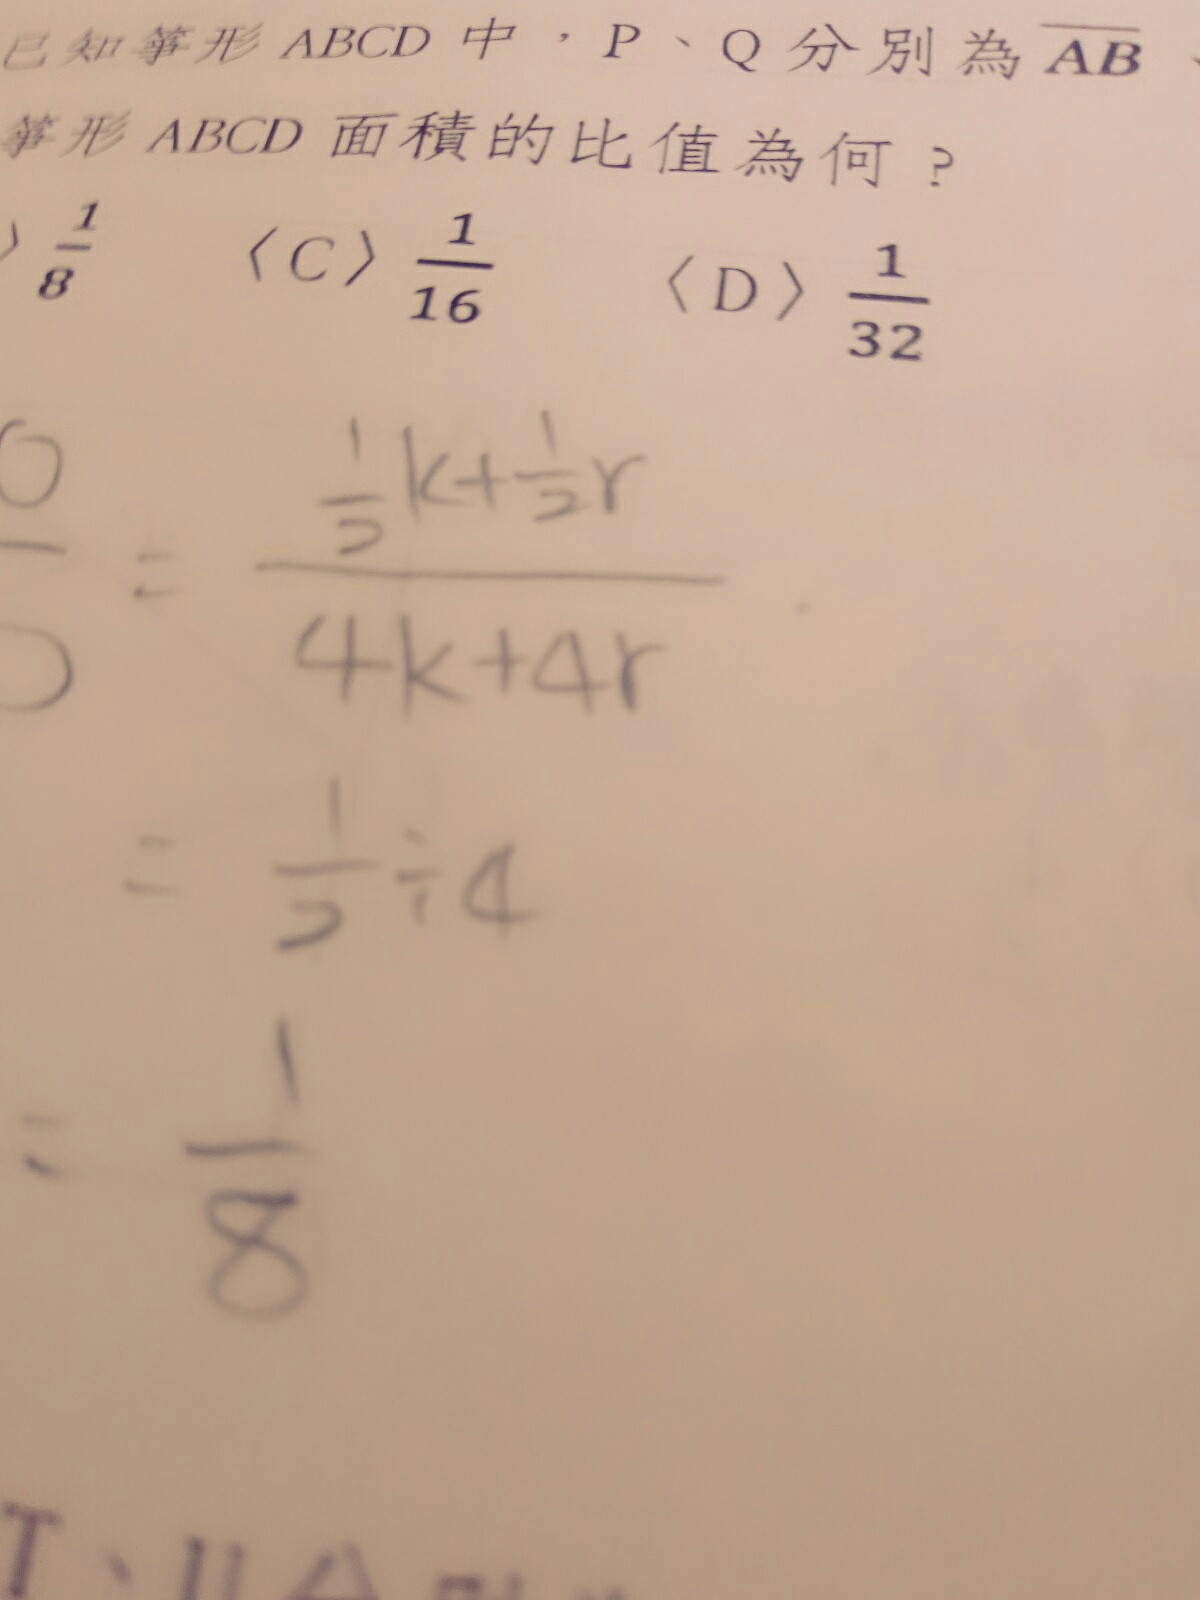 已知箏形 ABCD 中，P、Q 分別為 AB、
箏形 ABCD 面積的比值為何？
〉1/8 〈C〉1/16 〈D〉1/32
= (1/2 k + 1/2 r)/(4k+4r)
= 1/2 ÷ 4
= 1/8